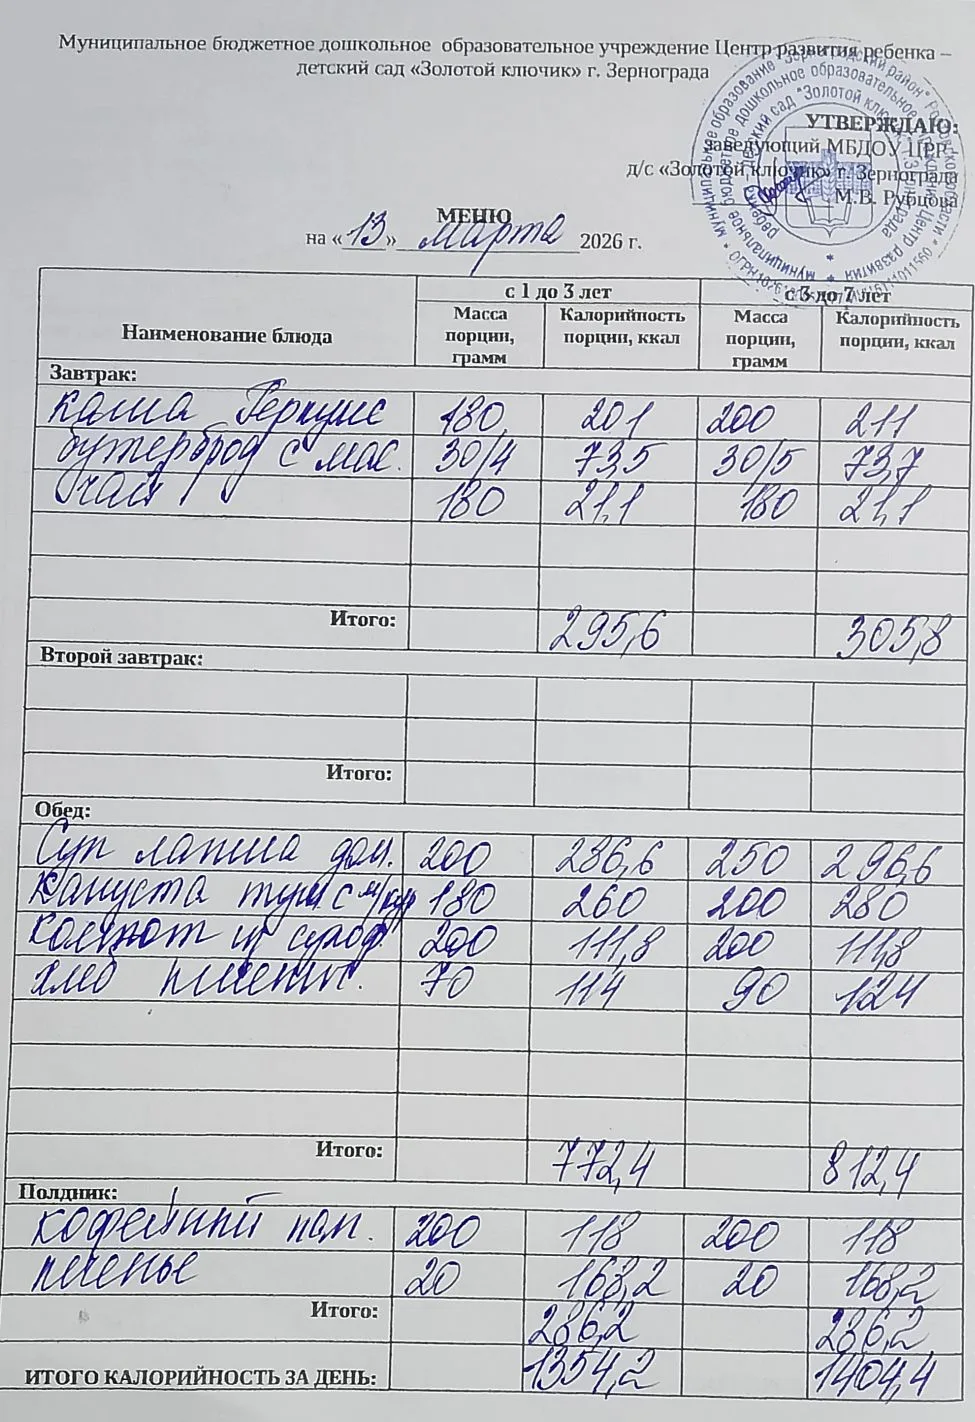 Муниципальное бюджетное дошкольное образовательное учреждение Центр развития ребенка –
детский сад «Золотой ключик» г. Зернограда
УТВЕРЖДАЮ:
заведующий МБДОУ ЦРР
д/с «Золотой ключик» г. Зернограда
М.В. Рубцова
МЕНЮ
на «13» марта 2026 г.
с 1 до 3 лет с 3 до 7 лет
Наименование блюда Масса порции, грамм Калорийность порции, ккал Масса порции, грамм Калорийность порции, ккал
Завтрак:
каша Геркулес 180 201 200 211
бутерброд с мас. 30/4 73,5 30/5 73,7
чай 180 21,1 180 21,1
Итого: 295,6 305,8
Второй завтрак:
Итого:
Обед:
Суп лапша дом. 200 286,6 250 296,6
капуста туш с м/кур 180 260 200 280
компот из сухоф. 200 111,8 200 111,8
хлеб пшенич. 70 114 90 124
Итого: 772,4 812,4
Полдник:
кофейный нап. 200 118 200 118
печенье 20 168,2 20 168,2
Итого: 286,2 286,2
ИТОГО КАЛОРИЙНОСТЬ ЗА ДЕНЬ: 1354,2 1404,4